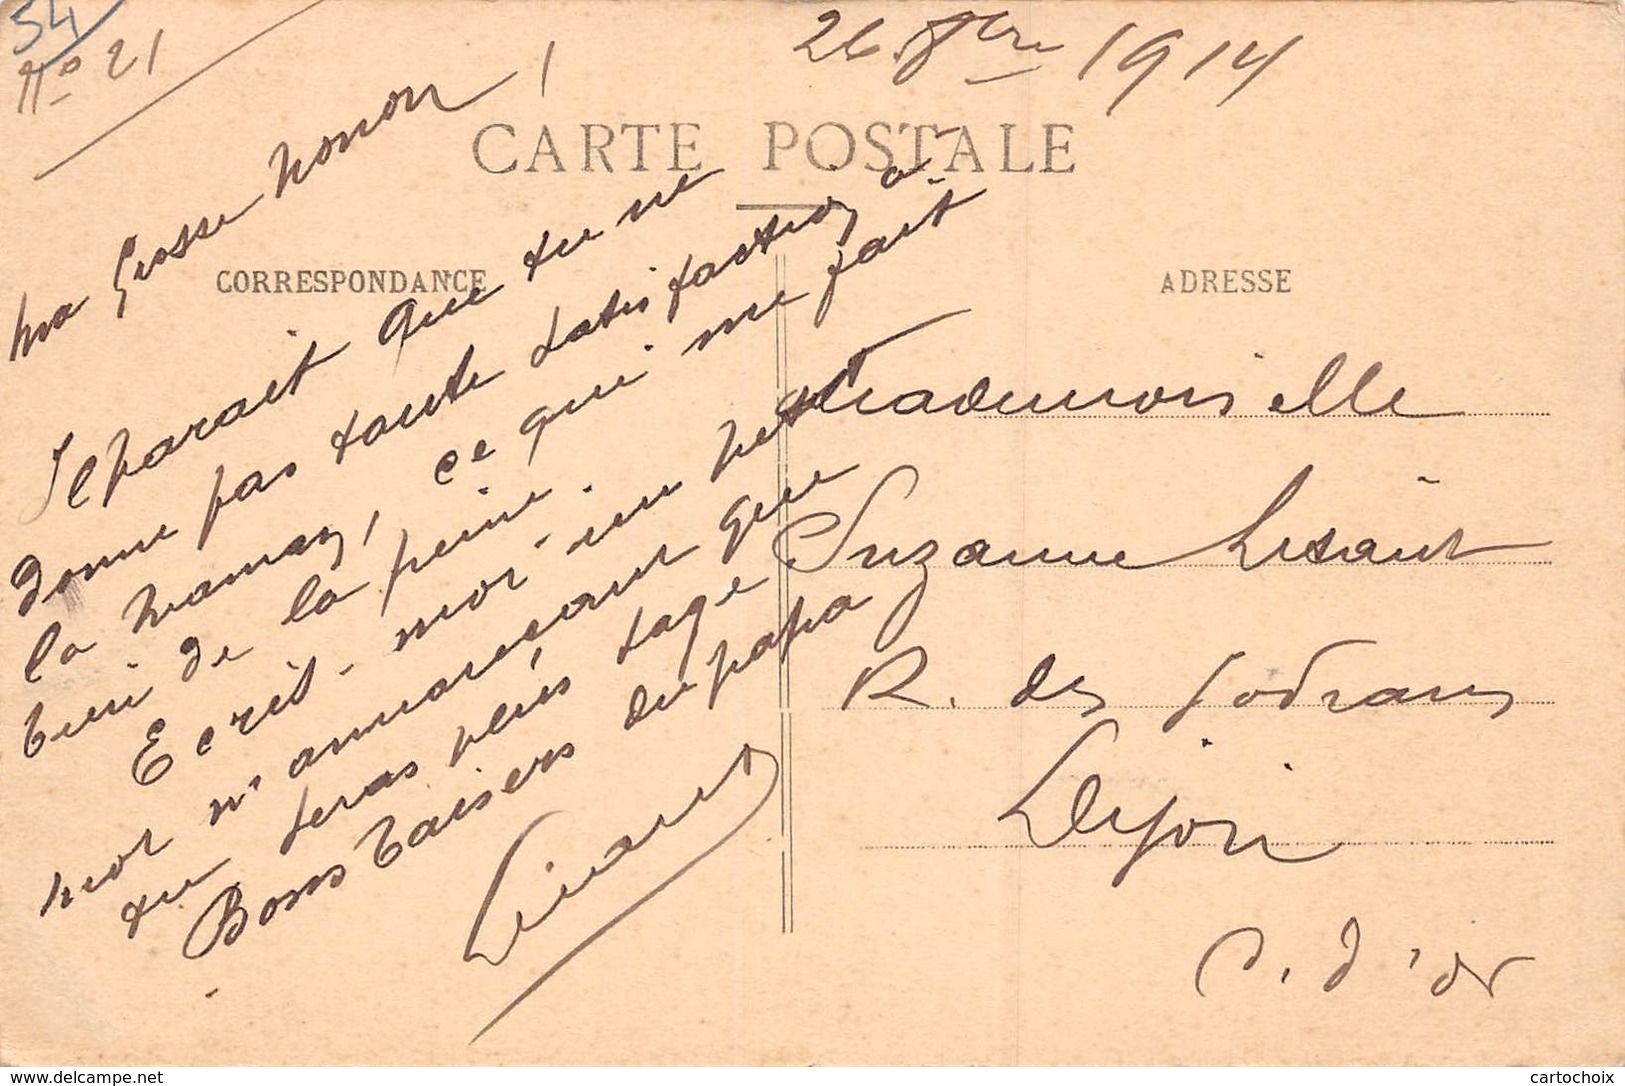 54
N° 21
26 8bre 1914
CARTE POSTALE
CORRESPONDANCE
Ma Gosse Nonon !
Il parait que tu ne
donne pas toute satisfaction à
la maman, ce qui me fait
bien de la peine.
Ecris-moi un petit
mot m'annonçant que
tu seras plus sage
Bons baisers du papa
ADRESSE
Mademoiselle
Suzanne
R. des Godrans
Dijon
C. d'or
www.delcampe.net
cartochoix